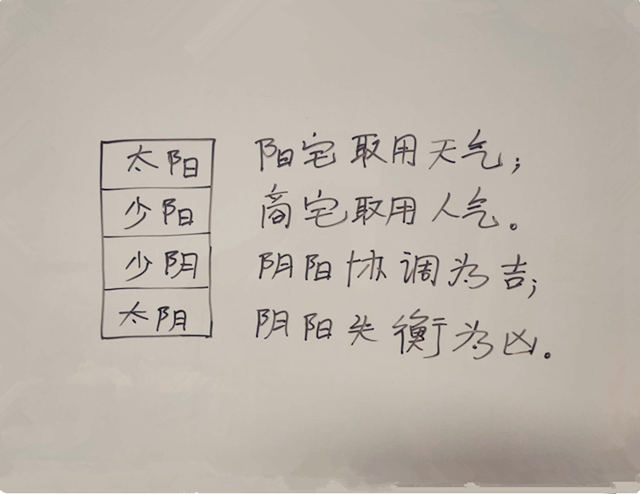 太阳 阳宅取用天气；
少阳 商宅取用人气。
少阴 阴阳协调为吉；
太阴 阴阳失衡为凶。